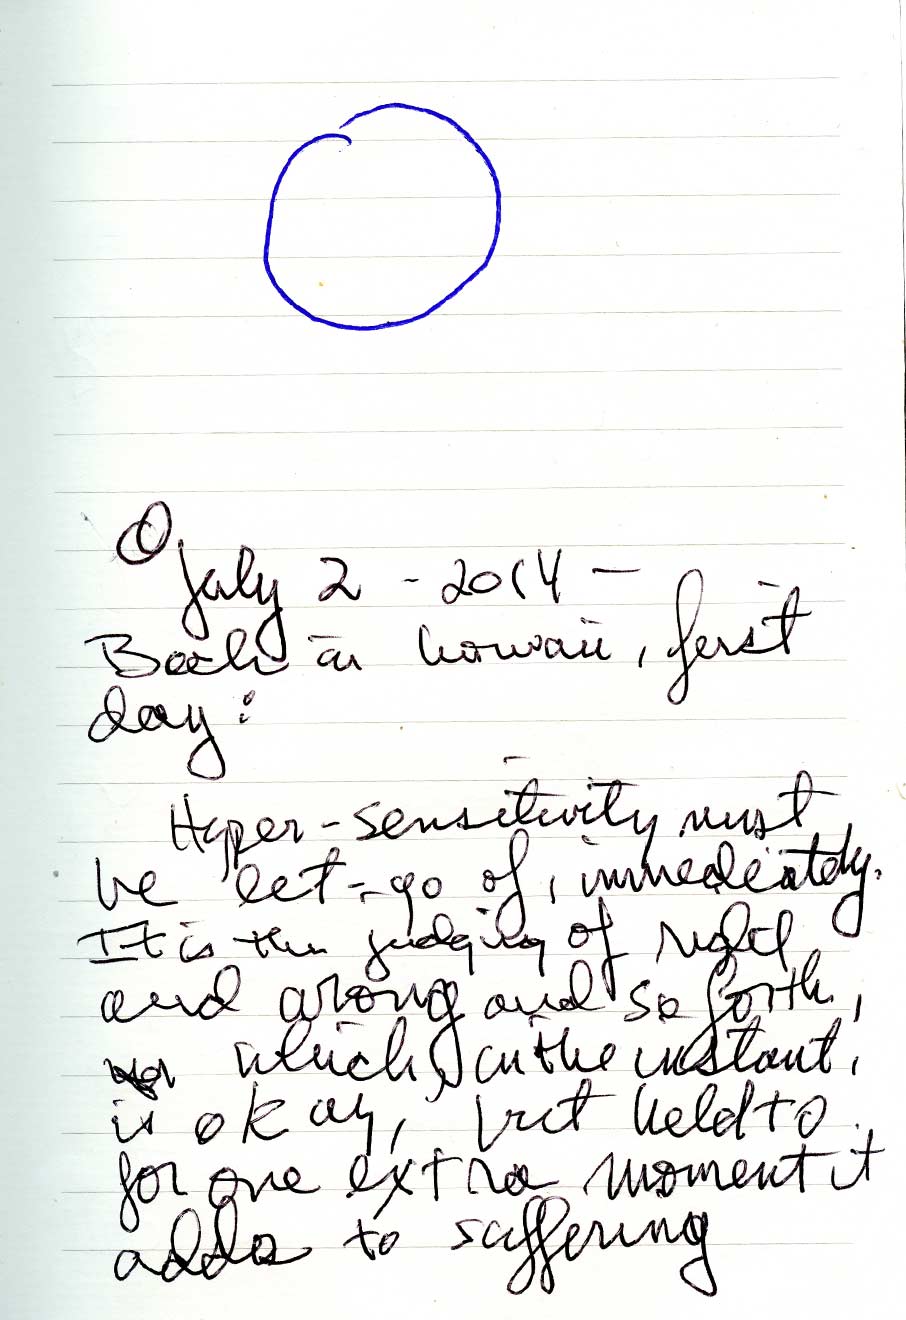 July 2 - 2014 -
Back in Hawaii, first
day:
Hyper-sensitivity must
be let-go of, immediately.
It is the judging of right
and wrong and so forth,
which, in the instant,
is okay, but held to
for one extra moment it
adds to suffering